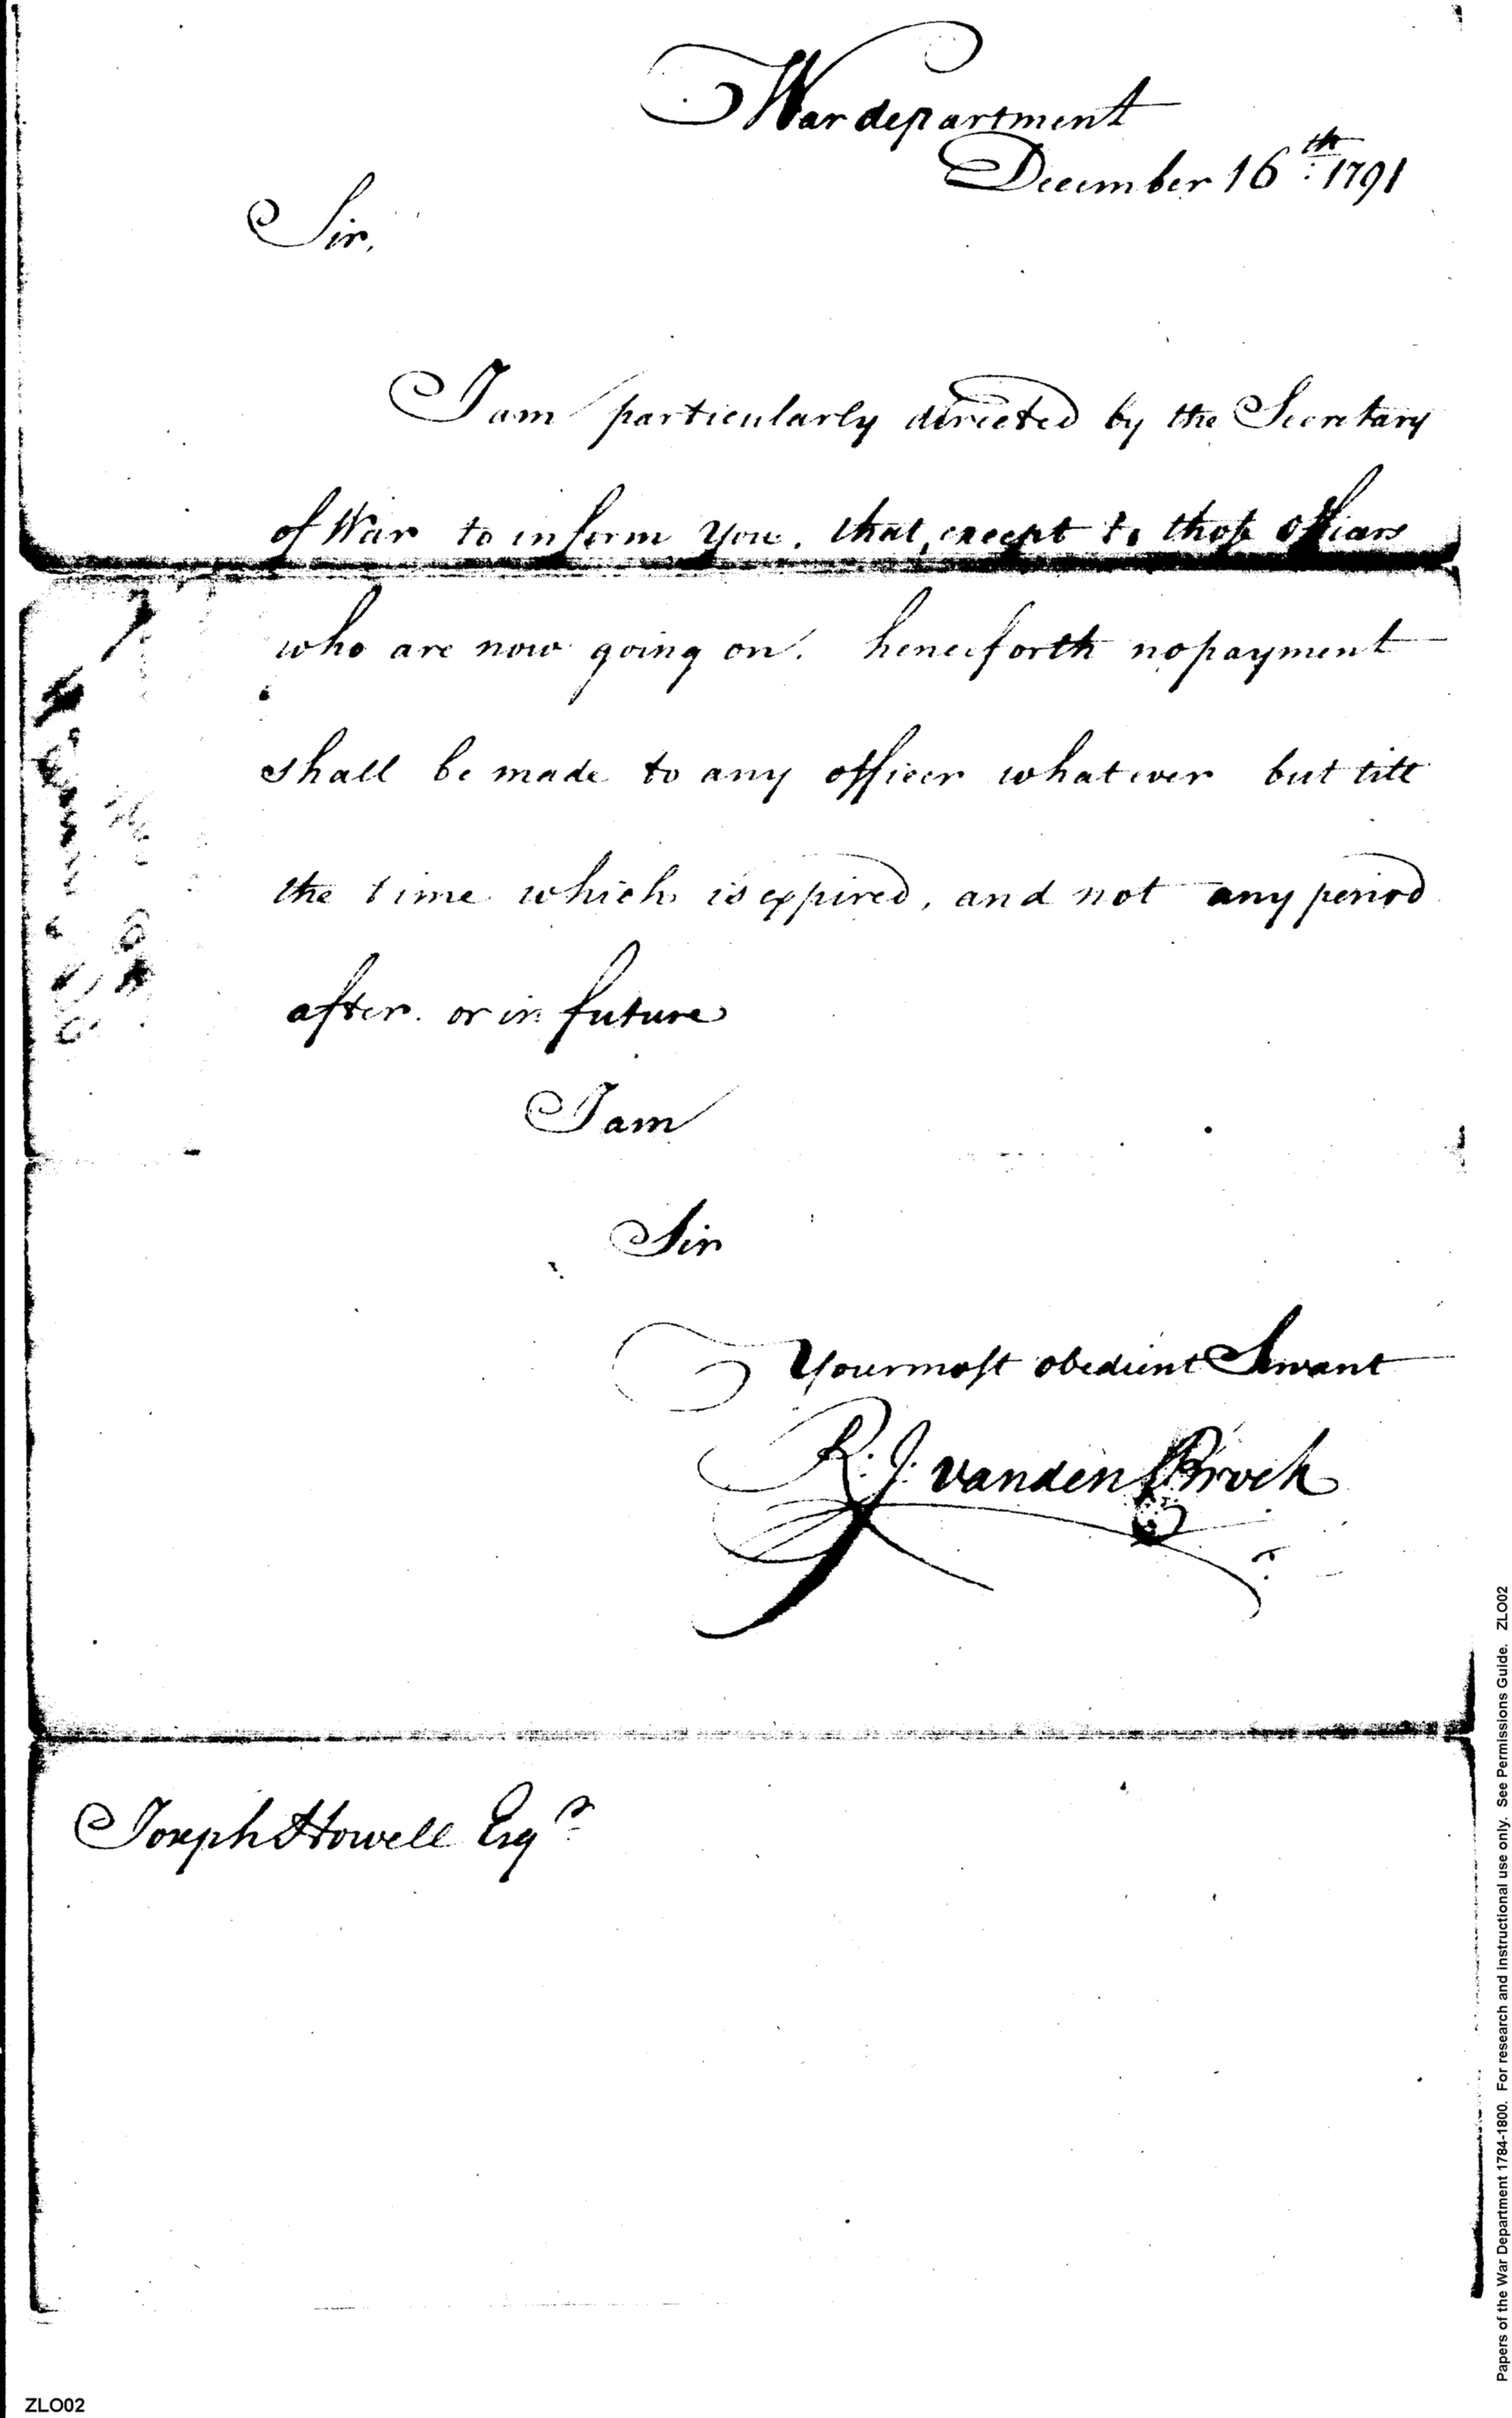 War department
December 16th 1791
Sir,
I am particularly directed by the Secretary
of War to inform you, that, except to those officers
who are now going on. henceforth no payment
shall be made to any officer whatever but till
the time which is expired, and not any period
after. or in future
I am
Sir
Your most obedient Servant
R. J. vanden Broek
Joseph Howell Esqr
Papers of the War Department 1784-1800. For research and instructional use only. See Permissions Guide. ZLO02
ZLO02